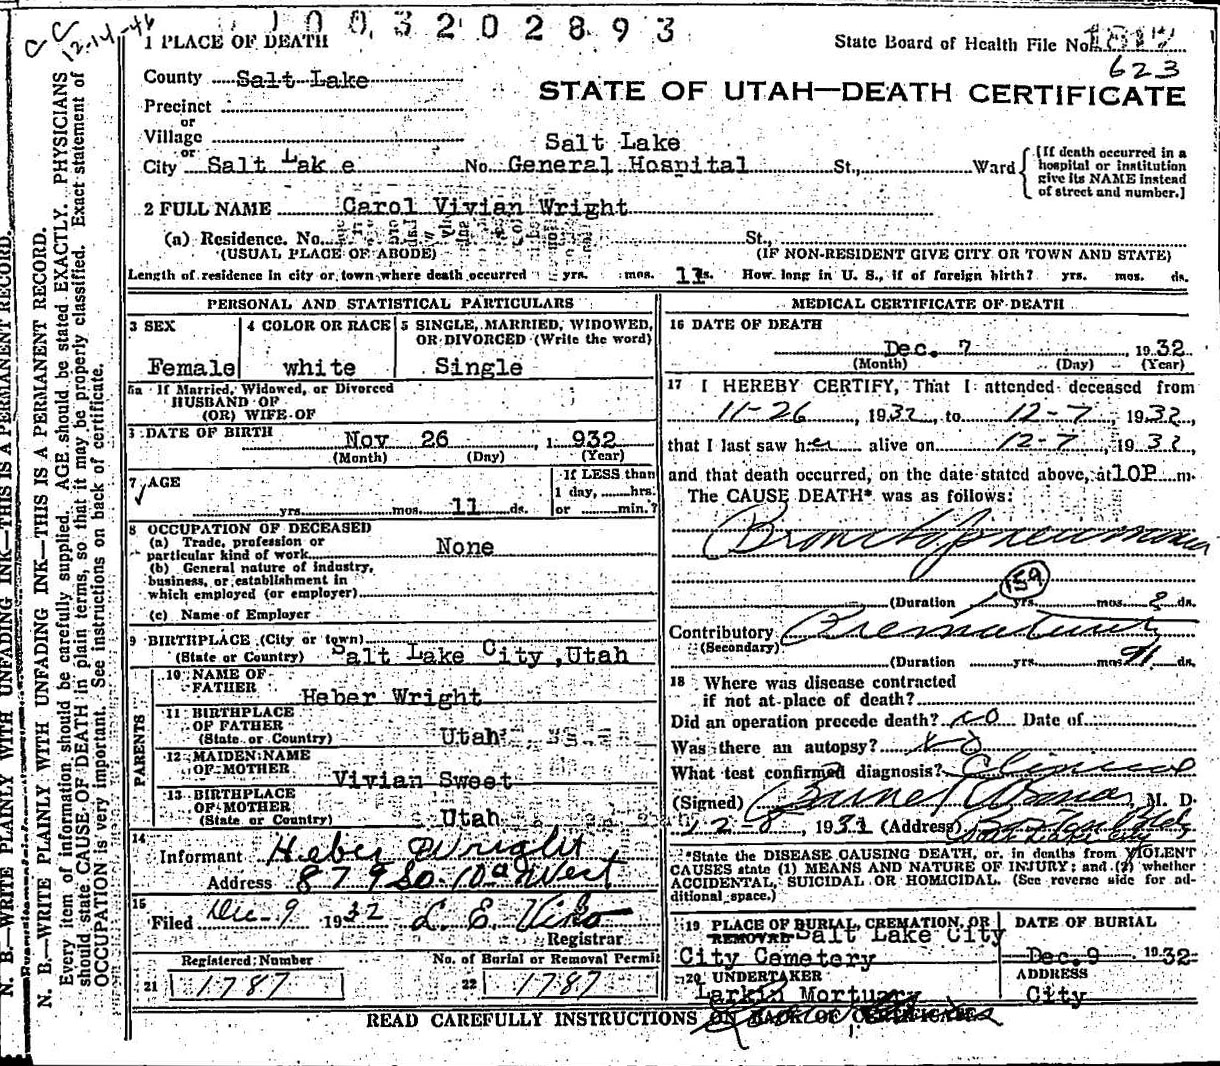 CC
12-14-46
1003202893
1 PLACE OF DEATH
State Board of Health File No. 1817
623
County Salt Lake
STATE OF UTAH—DEATH CERTIFICATE
Precinct
or
Village
or
Salt Lake
City Salt Lake No. General Hospital St., Ward
[If death occurred in a
hospital or institution
give its NAME instead
of street and number.]
2 FULL NAME Carol Vivian Wright
(a) Residence. No. St.,
(USUAL PLACE OF ABODE) (IF NON-RESIDENT GIVE CITY OR TOWN AND STATE)
Length of residence in city or town where death occurred yrs. mos. 11 ds. How long in U. S., if of foreign birth? yrs. mos. ds.
PERSONAL AND STATISTICAL PARTICULARS
3 SEX
Female
4 COLOR OR RACE
white
5 SINGLE, MARRIED, WIDOWED,
OR DIVORCED (Write the word)
Single
5a If Married, Widowed, or Divorced
HUSBAND OF
(OR) WIFE OF
DATE OF BIRTH
Nov 26, 1932
(Month) (Day) (Year)
7 AGE
yrs. mos. 11 ds.
If LESS than
1 day, hrs.
or min.?
8 OCCUPATION OF DECEASED
(a) Trade, profession or
particular kind of work None
(b) General nature of industry,
business, or establishment in
which employed (or employer)
(c) Name of Employer
9 BIRTHPLACE (City or town)
(State or Country) Salt Lake City, Utah
PARENTS
10 NAME OF
FATHER
Heber Wright
11 BIRTHPLACE
OF FATHER
(State or Country) Utah
12 MAIDEN NAME
OF MOTHER
Vivian Sweet
13 BIRTHPLACE
OF MOTHER
(State or Country) Utah
14
Informant Heber Wright
Address 879 So. 10th West
15
Filed Dec-9 1932
Registrar
Registered Number
21 1787
No. of Burial or Removal Permit
22 1787
MEDICAL CERTIFICATE OF DEATH
16 DATE OF DEATH
Dec. 7 1932
(Month) (Day) (Year)
17 I HEREBY CERTIFY, That I attended deceased from
11-26, 1932, to 12-7, 1932
that I last saw her alive on 12-7, 1932,
and that death occurred, on the date stated above, at 10P m.
The CAUSE DEATH* was as follows:
Bronchopneumonia
159
(Duration yrs. mos. 2 ds.
Contributory Prematurity
(Secondary)
(Duration yrs. mos. 11 ds.
18 Where was disease contracted
if not at place of death?
Did an operation precede death? no Date of
Was there an autopsy? no
What test confirmed diagnosis? Clinical
(Signed) M. D.
12-8, 1932 (Address)
*State the DISEASE CAUSING DEATH, or, in deaths from VIOLENT
CAUSES state (1) MEANS AND NATURE OF INJURY; and (2) whether
ACCIDENTAL, SUICIDAL OR HOMICIDAL. (See reverse side for ad-
ditional space.)
19 PLACE OF BURIAL, CREMATION, OR
REMOVAL Salt Lake City
City Cemetery
DATE OF BURIAL
Dec. 9 1932
20 UNDERTAKER
Larkin Mortuary
ADDRESS
City
READ CAREFULLY INSTRUCTIONS ON BACK OF CERTIFICATE
N. B.—WRITE PLAINLY WITH UNFADING INK—THIS IS A PERMANENT RECORD.
N. B.—WRITE PLAINLY WITH UNFADING INK—THIS IS A PERMANENT RECORD.
Every item of information should be carefully supplied. AGE should be stated EXACTLY. PHYSICIANS
should state CAUSE OF DEATH in plain terms, so that it may be properly classified. Exact statement of
OCCUPATION is very important. See instructions on back of certificate.